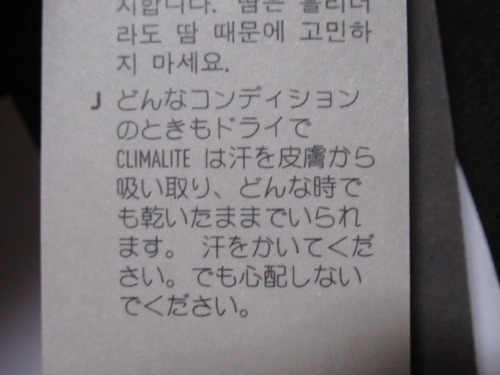 지합니다. 땀은 흘리더
라도 땀 때문에 고민하
지 마세요.
J どんなコンディション
のときもドライで
CLIMALITE は汗を皮膚から
吸い取り、どんな時で
も乾いたままでいられ
ます。 汗をかいてくだ
さい。でも心配しない
でください。